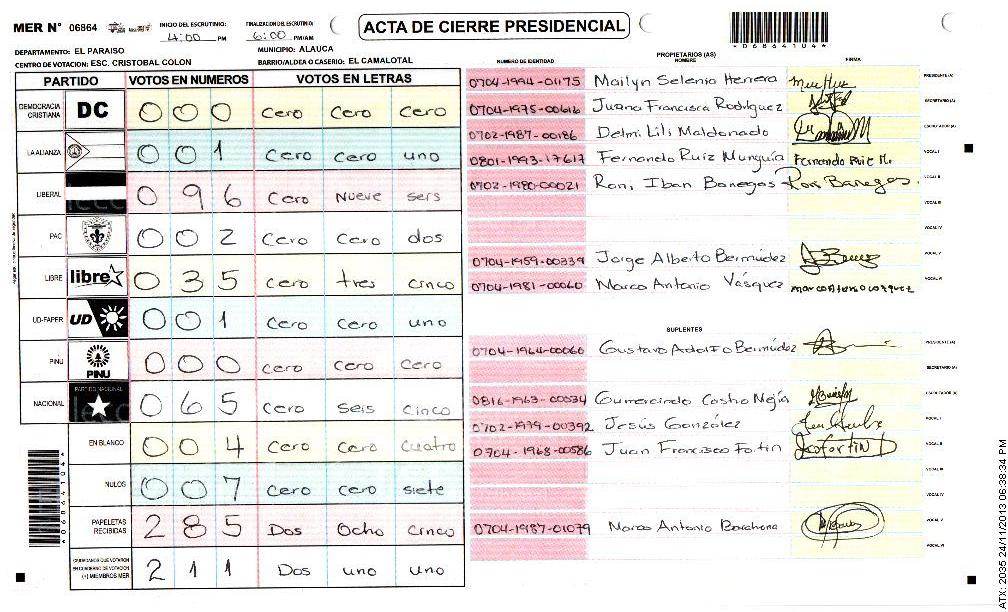 MER N° 06864
INICIO DEL ESCRUTINIO: 4:00 PM
FINALIZACION DEL ESCRUTINIO: 6:00 PM/AM
ACTA DE CIERRE PRESIDENCIAL
*06864104*
DEPARTAMENTO: EL PARAISO
MUNICIPIO: ALAUCA
CENTRO DE VOTACION: ESC. CRISTOBAL COLON
BARRIO/ALDEA O CASERIO: EL CAMALOTAL
PARTIDO VOTOS EN NUMEROS VOTOS EN LETRAS
DEMOCRACIA CRISTIANA DC 0 0 0 Cero Cero Cero
LA ALIANZA 0 0 1 Cero Cero uno
LIBERAL 0 9 6 Cero Nueve seis
PAC 0 0 2 Cero Cero dos
LIBRE libre 0 3 5 Cero tres cinco
UD-FAPER UD 0 0 1 Cero Cero uno
PINU PINU 0 0 0 cero Cero Cero
NACIONAL PARTIDO NACIONAL 0 6 5 Cero seis cinco
EN BLANCO 0 0 4 Cero Cero cuatro
NULOS 0 0 7 Cero Cero siete
PAPELETAS RECIBIDAS 2 8 5 Dos Ocho cinco
CIUDADANOS QUE VOTARON EN CUADERNO DE VOTACION (+) MIEMBROS MER 2 1 1 Dos uno uno
*06864104*
PROPIETARIOS (AS)
NUMERO DE IDENTIDAD NOMBRE FIRMA
0704-1994-01175 Mailyn Selenia Herrera PRESIDENTE (A)
0704-1975-00616 Juana Francisca Rodriguez SECRETARIO (A)
0702-1987-00186 Delmi Lili Maldonado ESCRUTADOR (A)
0801-1993-17617 Fernando Ruiz Munguía Fernando Ruiz M. VOCAL I
0702-1980-00021 Roni Iban Banegas Roni Banegas. VOCAL II
VOCAL III
VOCAL IV
0704-1959-00339 Jorge Alberto Bermúdez VOCAL V
0704-1981-00060 Marco Antonio Vásquez VOCAL VI
SUPLENTES
0704-1964-00060 Gustavo Adolfo Bermúdez PRESIDENTE (A)
SECRETARIO (A)
0816-1963-00034 Gumercindo Castro Mejía ESCRUTADOR (A)
0702-1979-00392 Jesús González VOCAL I
0704-1968-00586 Juan Francisco Fortin VOCAL II
VOCAL III
VOCAL IV
0704-1987-01079 Marco Antonio Barahona VOCAL V
VOCAL VI
ATX: 2035 24/11/2013 06:38:34 PM